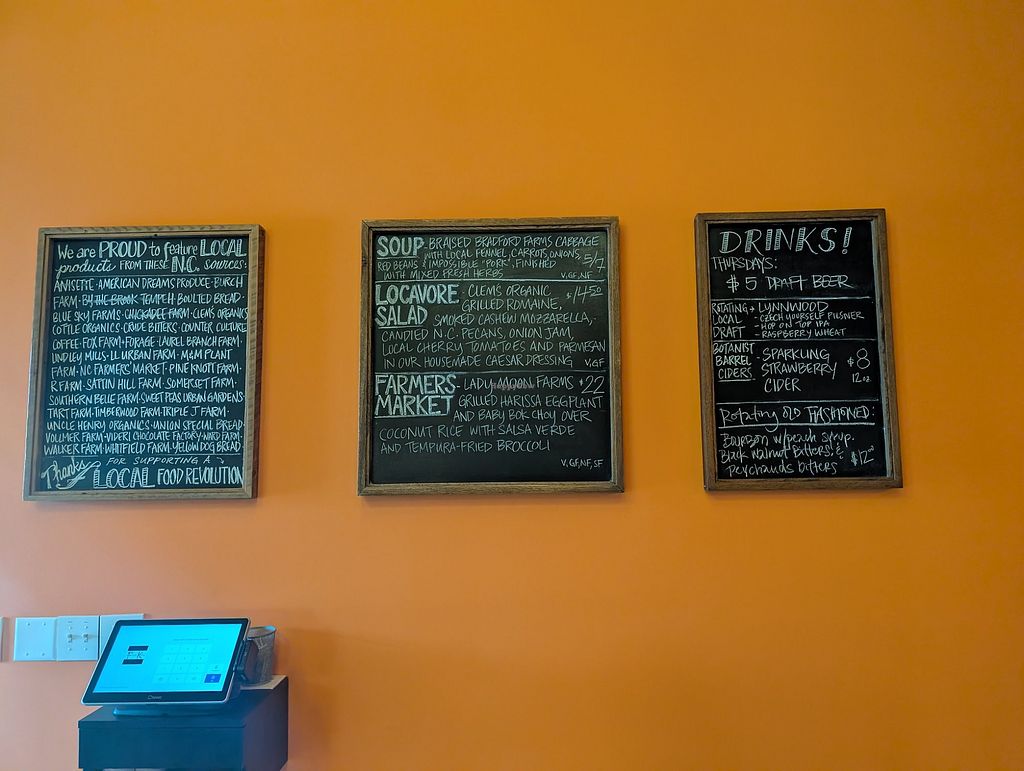 We are PROUD to feature LOCAL
products FROM THESE N.C. sources:
ANISETTE · AMERICAN DREAMS PRODUCE · BURCH
FARM · BY THE BROOK TEMPEH · BOULTED BREAD ·
BLUE SKY FARMS · CHICKADEE FARM · CLEMS ORGANICS
COTTLE ORGANICS · CRUDE BITTERS · COUNTER CULTURE
COFFEE · FOX FARM + FORAGE · LAUREL BRANCH FARM ·
LINDLEY MILLS · LL URBAN FARM · M&M PLANT
FARM · NC FARMERS' MARKET · PINE KNOTT FARM ·
R FARM · SATTIN HILL FARM · SOMERSET FARM ·
SOUTHERN BELLE FARM · SWEET PEAS URBAN GARDENS ·
TART FARM · TIMBERWOOD FARM · TRIPLE J FARM ·
UNCLE HENRY ORGANICS · UNION SPECIAL BREAD
VOLLMER FARM · VIDERI CHOCOLATE FACTORY · WARD FARM ·
WALKER FARM · WHITFIELD FARM · YELLOW DOG BREAD
Thanks FOR SUPPORTING A
LOCAL FOOD REVOLUTION
SOUP - BRAISED BRADFORD FARMS CABBAGE
WITH LOCAL FENNEL, CARROTS, ONIONS,
RED BEANS & IMPOSSIBLE "PORK", FINISHED 5/7
WITH MIXED FRESH HERBS V, GF, NF
LOCAVORE - CLEM'S ORGANIC $14.50
SALAD GRILLED ROMAINE,
SMOKED CASHEW MOZZARELLA,
CANDIED N.C. PECANS, ONION JAM,
LOCAL CHERRY TOMATOES AND PARMESAN
IN OUR HOUSEMADE CAESAR DRESSING V, GF
FARMERS - LADY MOON FARMS $22
MARKET GRILLED HARISSA EGGPLANT
AND BABY BOK CHOY OVER
COCONUT RICE WITH SALSA VERDE
AND TEMPURA-FRIED BROCCOLI
V, GF, NF, SF
DRINKS!
THURSDAYS:
$5 DRAFT BEER
ROTATING → LYNNWOOD
LOCAL - CZECH YOURSELF PILSNER
DRAFT - HOP ON TOP IPA
- RASPBERRY WHEAT
BOTANIST
BARREL - SPARKLING $8
CIDERS STRAWBERRY 12oz
CIDER
Rotating OLD FASHIONED:
Bourbon w/peach syrup,
Black Walnut Bitters, &
Peychauds bitters $12